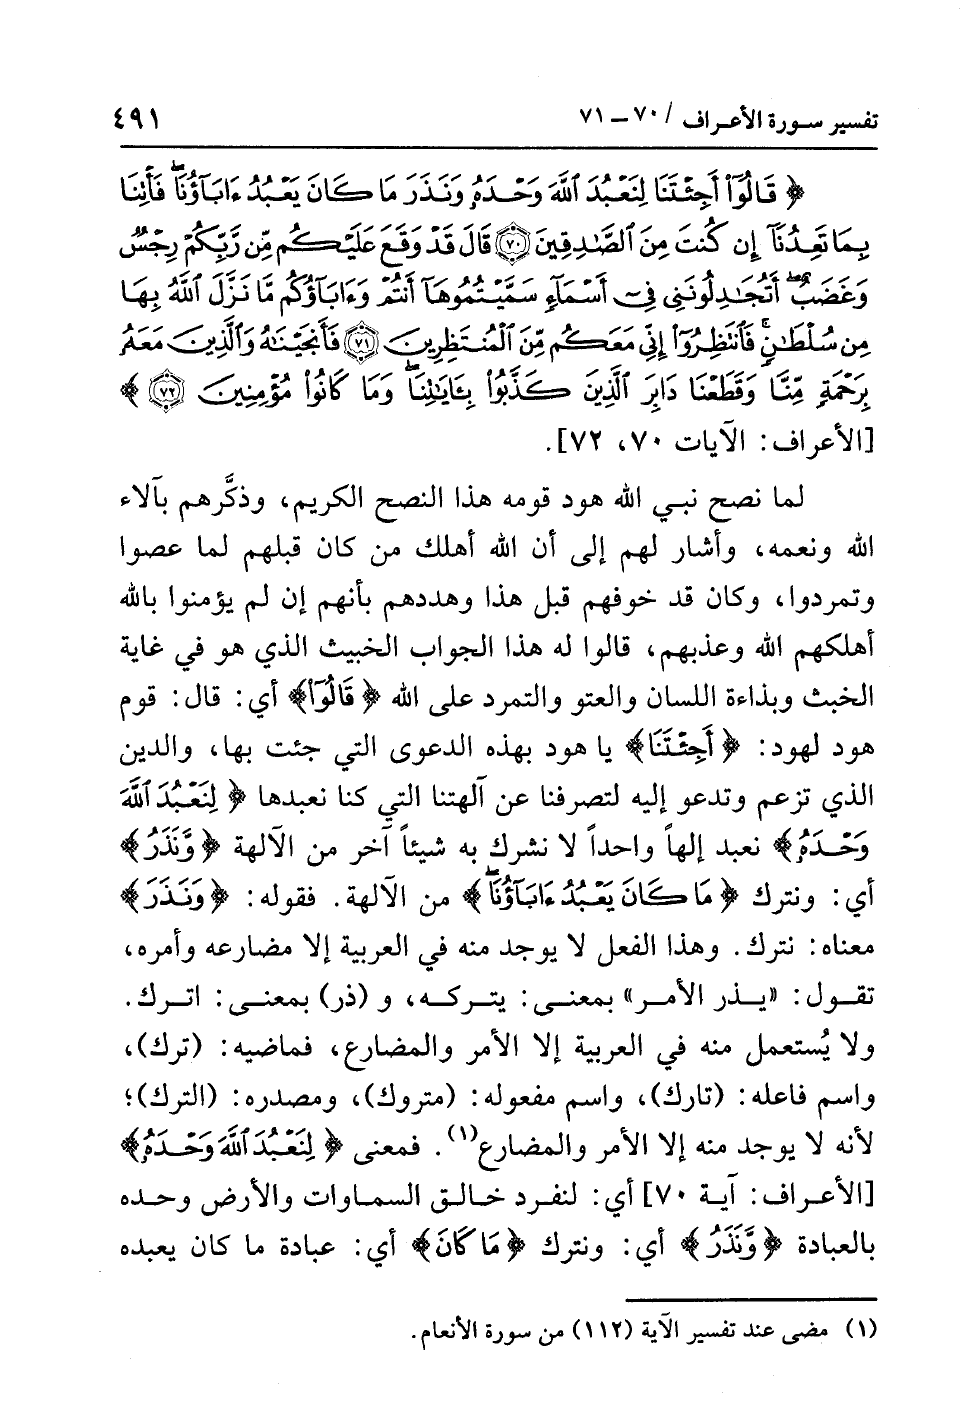 تفسير سورة الأعراف / ٧٠ – ٧١ ٤٩١
﴿ قَالُوٓا۟ أَجِئْتَنَا لِنَعْبُدَ ٱللَّهَ وَحْدَهُۥ وَنَذَرَ مَا كَانَ يَعْبُدُ ءَابَآؤُنَا ۖ فَأْتِنَا
بِمَا تَعِدُنَآ إِن كُنتَ مِنَ ٱلصَّـٰدِقِينَ ٧٠ قَالَ قَدْ وَقَعَ عَلَيْكُم مِّن رَّبِّكُمْ رِجْسٌ
وَغَضَبٌ ۖ أَتُجَـٰدِلُونَنِى فِىٓ أَسْمَآءٍ سَمَّيْتُمُوهَآ أَنتُمْ وَءَابَآؤُكُم مَّا نَزَّلَ ٱللَّهُ بِهَا
مِن سُلْطَـٰنٍ ۚ فَٱنتَظِرُوٓا۟ إِنِّى مَعَكُم مِّنَ ٱلْمُنتَظِرِينَ ٧١ فَأَنجَيْنَـٰهُ وَٱلَّذِينَ مَعَهُۥ
بِرَحْمَةٍ مِّنَّا وَقَطَعْنَا دَابِرَ ٱلَّذِينَ كَذَّبُوا۟ بِـَٔايَـٰتِنَا ۖ وَمَا كَانُوا۟ مُؤْمِنِينَ ٧٢ ﴾
[الأعراف: الآيات ٧٠، ٧٢].
لما نصح نبي الله هود قومه هذا النصح الكريم، وذكَّرهم بآلاء
الله ونعمه، وأشار لهم إلى أن الله أهلك من كان قبلهم لما عصوا
وتمردوا، وكان قد خوفهم قبل هذا وهددهم بأنهم إن لم يؤمنوا بالله
أهلكهم الله وعذبهم، قالوا له هذا الجواب الخبيث الذي هو في غاية
الخبث وبذاءة اللسان والعتو والتمرد على الله ﴿ قَالُوٓا۟﴾ أي: قال: قوم
هود لهود: ﴿ أَجِئْتَنَا﴾ يا هود بهذه الدعوى التي جئت بها، والدين
الذي تزعم وتدعو إليه لتصرفنا عن آلهتنا التي كنا نعبدها ﴿ لِنَعْبُدَ ٱللَّهَ
وَحْدَهُۥ﴾ نعبد إلهاً واحداً لا نشرك به شيئاً آخر من الآلهة ﴿ وَنَذَرَ﴾
أي: ونترك ﴿ مَا كَانَ يَعْبُدُ ءَابَآؤُنَا ۖ﴾ من الآلهة. فقوله: ﴿ وَنَذَرَ﴾
معناه: نترك. وهذا الفعل لا يوجد منه في العربية إلا مضارعه وأمره،
تقول: «يذر الأمر» بمعنى: يتركه، و (ذر) بمعنى: اترك.
ولا يُستعمل منه في العربية إلا الأمر والمضارع، فماضيه: (ترك)،
واسم فاعله: (تارك)، واسم مفعوله: (متروك)، ومصدره: (الترك)؛
لأنه لا يوجد منه إلا الأمر والمضارع(١). فمعنى ﴿ لِنَعْبُدَ ٱللَّهَ وَحْدَهُۥ﴾
[الأعراف: آية ٧٠] أي: لنفرد خالق السماوات والأرض وحده
بالعبادة ﴿ وَنَذَرَ﴾ أي: ونترك ﴿ مَا كَانَ﴾ أي: عبادة ما كان يعبده
(١) مضى عند تفسير الآية (١١٢) من سورة الأنعام.